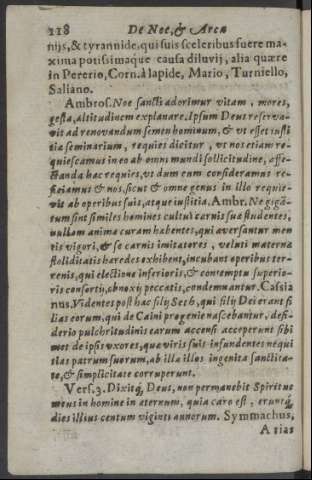 118 De Noe, & Arca
nijs, & tyrannide, qui suis sceleribus fuere ma-
xima potissimaque causa diluvij, alia quære
in Pererio, Corn. à lapide, Mario, Turniello,
Saliano.
Ambros. Noe sancti adorimur vitam, mores,
gesta, altitudinem explanare. Ipsum Deus reserva-
vit ad renovandum semen hominum, & vt esset iusti
tia seminarium, requies dicitur, vt nos etiam re-
quiescamus in eo ab omni mundi sollicitudine, affe-
ctanda hac requies, vt dum eum consideramus re-
ficiamus & nos, sicut & omne genus in illo requie-
vit ab operibus suis, atque iustitia. Ambr. Ne gigã-
tum sint similes homines cultui carnis suæ studentes,
nullam animæ curam habentes, qui aversantur men
tis vigori, & se carnis imitatores, veluti maternæ
stoliditatis hæredes exhibent, incubant operibus ter-
renis, qui electione inferioris, & contemptu superio-
ris consortij, obnoxij peccatis, condemnantur. Cassia
nus, Videntes post hæc filij Seth, qui filij Dei erant fi
lias eorum, qui de Caini progenie nascebantur, desi-
derio pulchritudinis earum accensi acceperunt sibi
inet de ipsis vxores, quæ viris suis infundentes nequi
tias patrum suorum, ab illa illos ingenita sanctita-
te, & simplicitate corruperunt.
Vers. 3. Dixitq́ Deus, non permanebit Spiritus
meus in homine in æternum, quia caro est, eruntq́
dies illius centum viginti annorum. Symmachus,
A tias